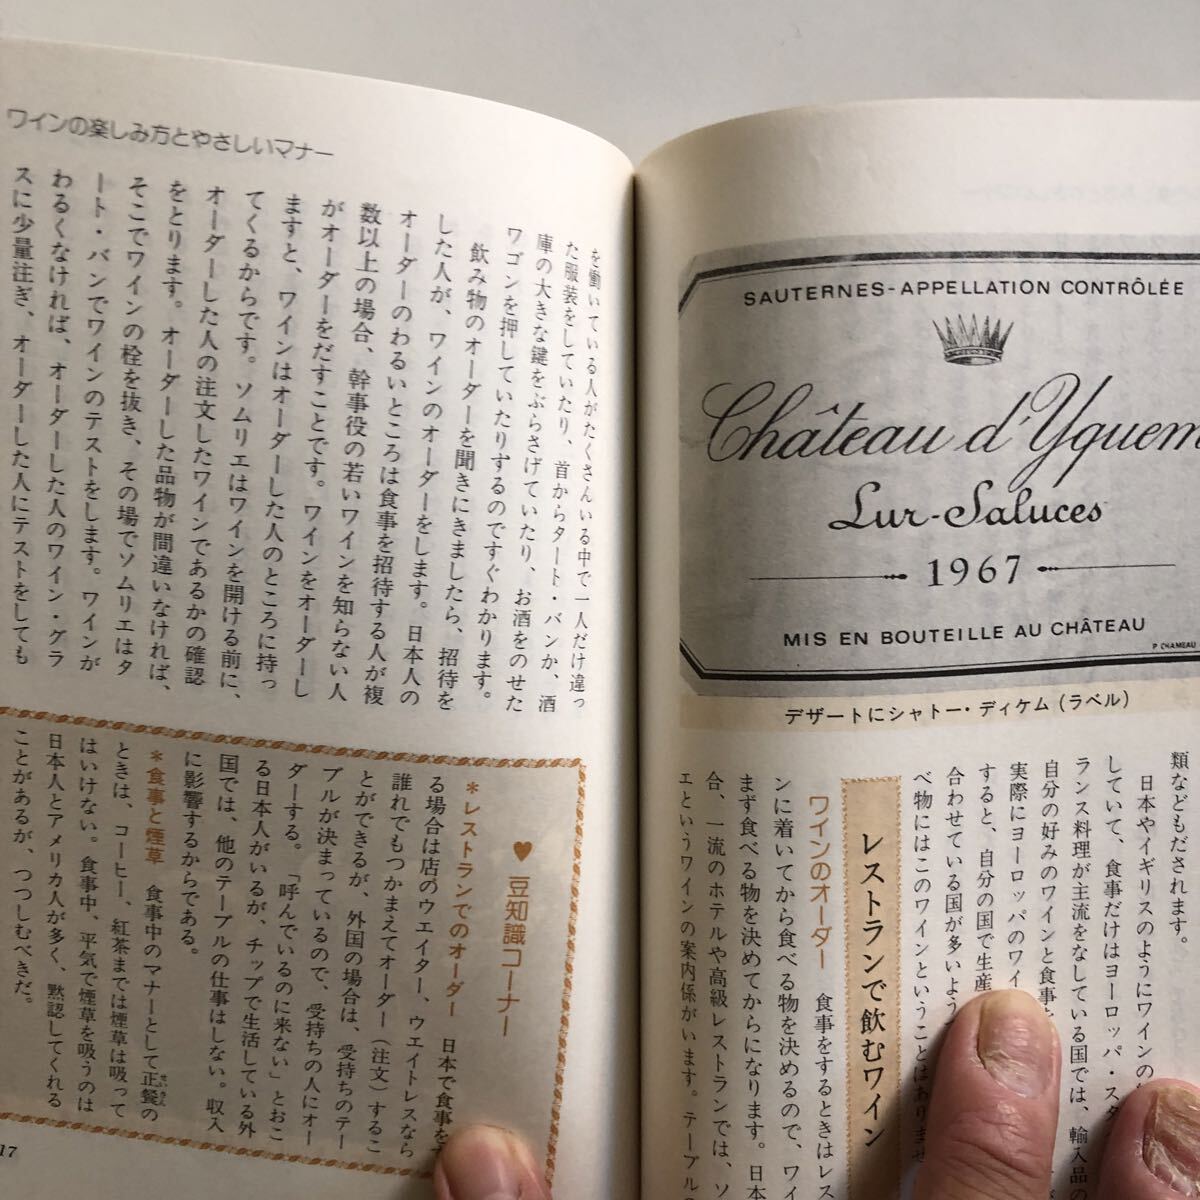 SAUTERNES-APPELLATION CONTRÔLÉE
Château d'Yquem
Lur-Saluces
1967
MIS EN BOUTEILLE AU CHÂTEAU
P. CHAMEAU
デザートにシャトー・ディケム(ラベル)
類なども見られます。
日本やイギリスのようにワインの
していて、食事だけはヨーロッパ・スタ
ランス料理が主流をなしている国では、輸入品の
自分の好みのワインと食事
実際にヨーロッパのワイ
すると、自分の国で生産
合わせている国が多いよう
べ物にはこのワインということはありませ
レストランで飲むワイン
ワインのオーダー 食事をするときはレス
ンに着いてから食べる物を決めるので、ワイ
まず食べる物を決めてからになります。日本
合、一流のホテルや高級レストランでは、ソ
エというワインの案内係がいます。テーブルの
ワインの楽しみ方とやさしいマナー
を働いている人がたくさんいる中で一人だけ違っ
た服装をしていたり、首からタート・バンか、酒
庫の大きな鍵をぶらさげていたり、お酒をのせた
ワゴンを押していたりするのですぐわかります。
飲み物のオーダーを聞きにきましたら、招待を
した人が、ワインのオーダーをします。日本人の
オーダーのわるいところは食事を招待する人が複
数以上の場合、幹事役の若いワインを知らない人
がオーダーをだすことです。ワインをオーダーし
ますと、ワインはオーダーした人のところに持っ
てくるからです。ソムリエはワインを開ける前に、
オーダーした人の注文したワインであるかの確認
をとります。オーダーした品物が間違いなければ、
そこでワインの栓を抜き、その場でソムリエはタ
ート・バンでワインのテストをします。ワインが
わるくなければ、オーダーした人のワイン・グラ
スに少量注ぎ、オーダーした人にテストをしても
♥ 豆知識コーナー
*レストランでのオーダー 日本で食事を
る場合は店のウエイター、ウエイトレスなら
誰れでもつかまえてオーダー(注文)するこ
とができるが、外国の場合は、受持ちのテー
ブルが決まっているので、受持ちの人にオー
ダーする。「呼んでいるのに来ない」とおこ
る日本人がいるが、チップで生活している外
国では、他のテーブルの仕事はしない。収入
に影響するからである。
*食事と煙草 食事中のマナーとして正餐の
せいさん
ときは、コーヒー、紅茶までは煙草は吸って
はいけない。食事中、平気で煙草を吸うのは
日本人とアメリカ人が多く、黙認してくれる
ことがあるが、つつしむべきだ。
17